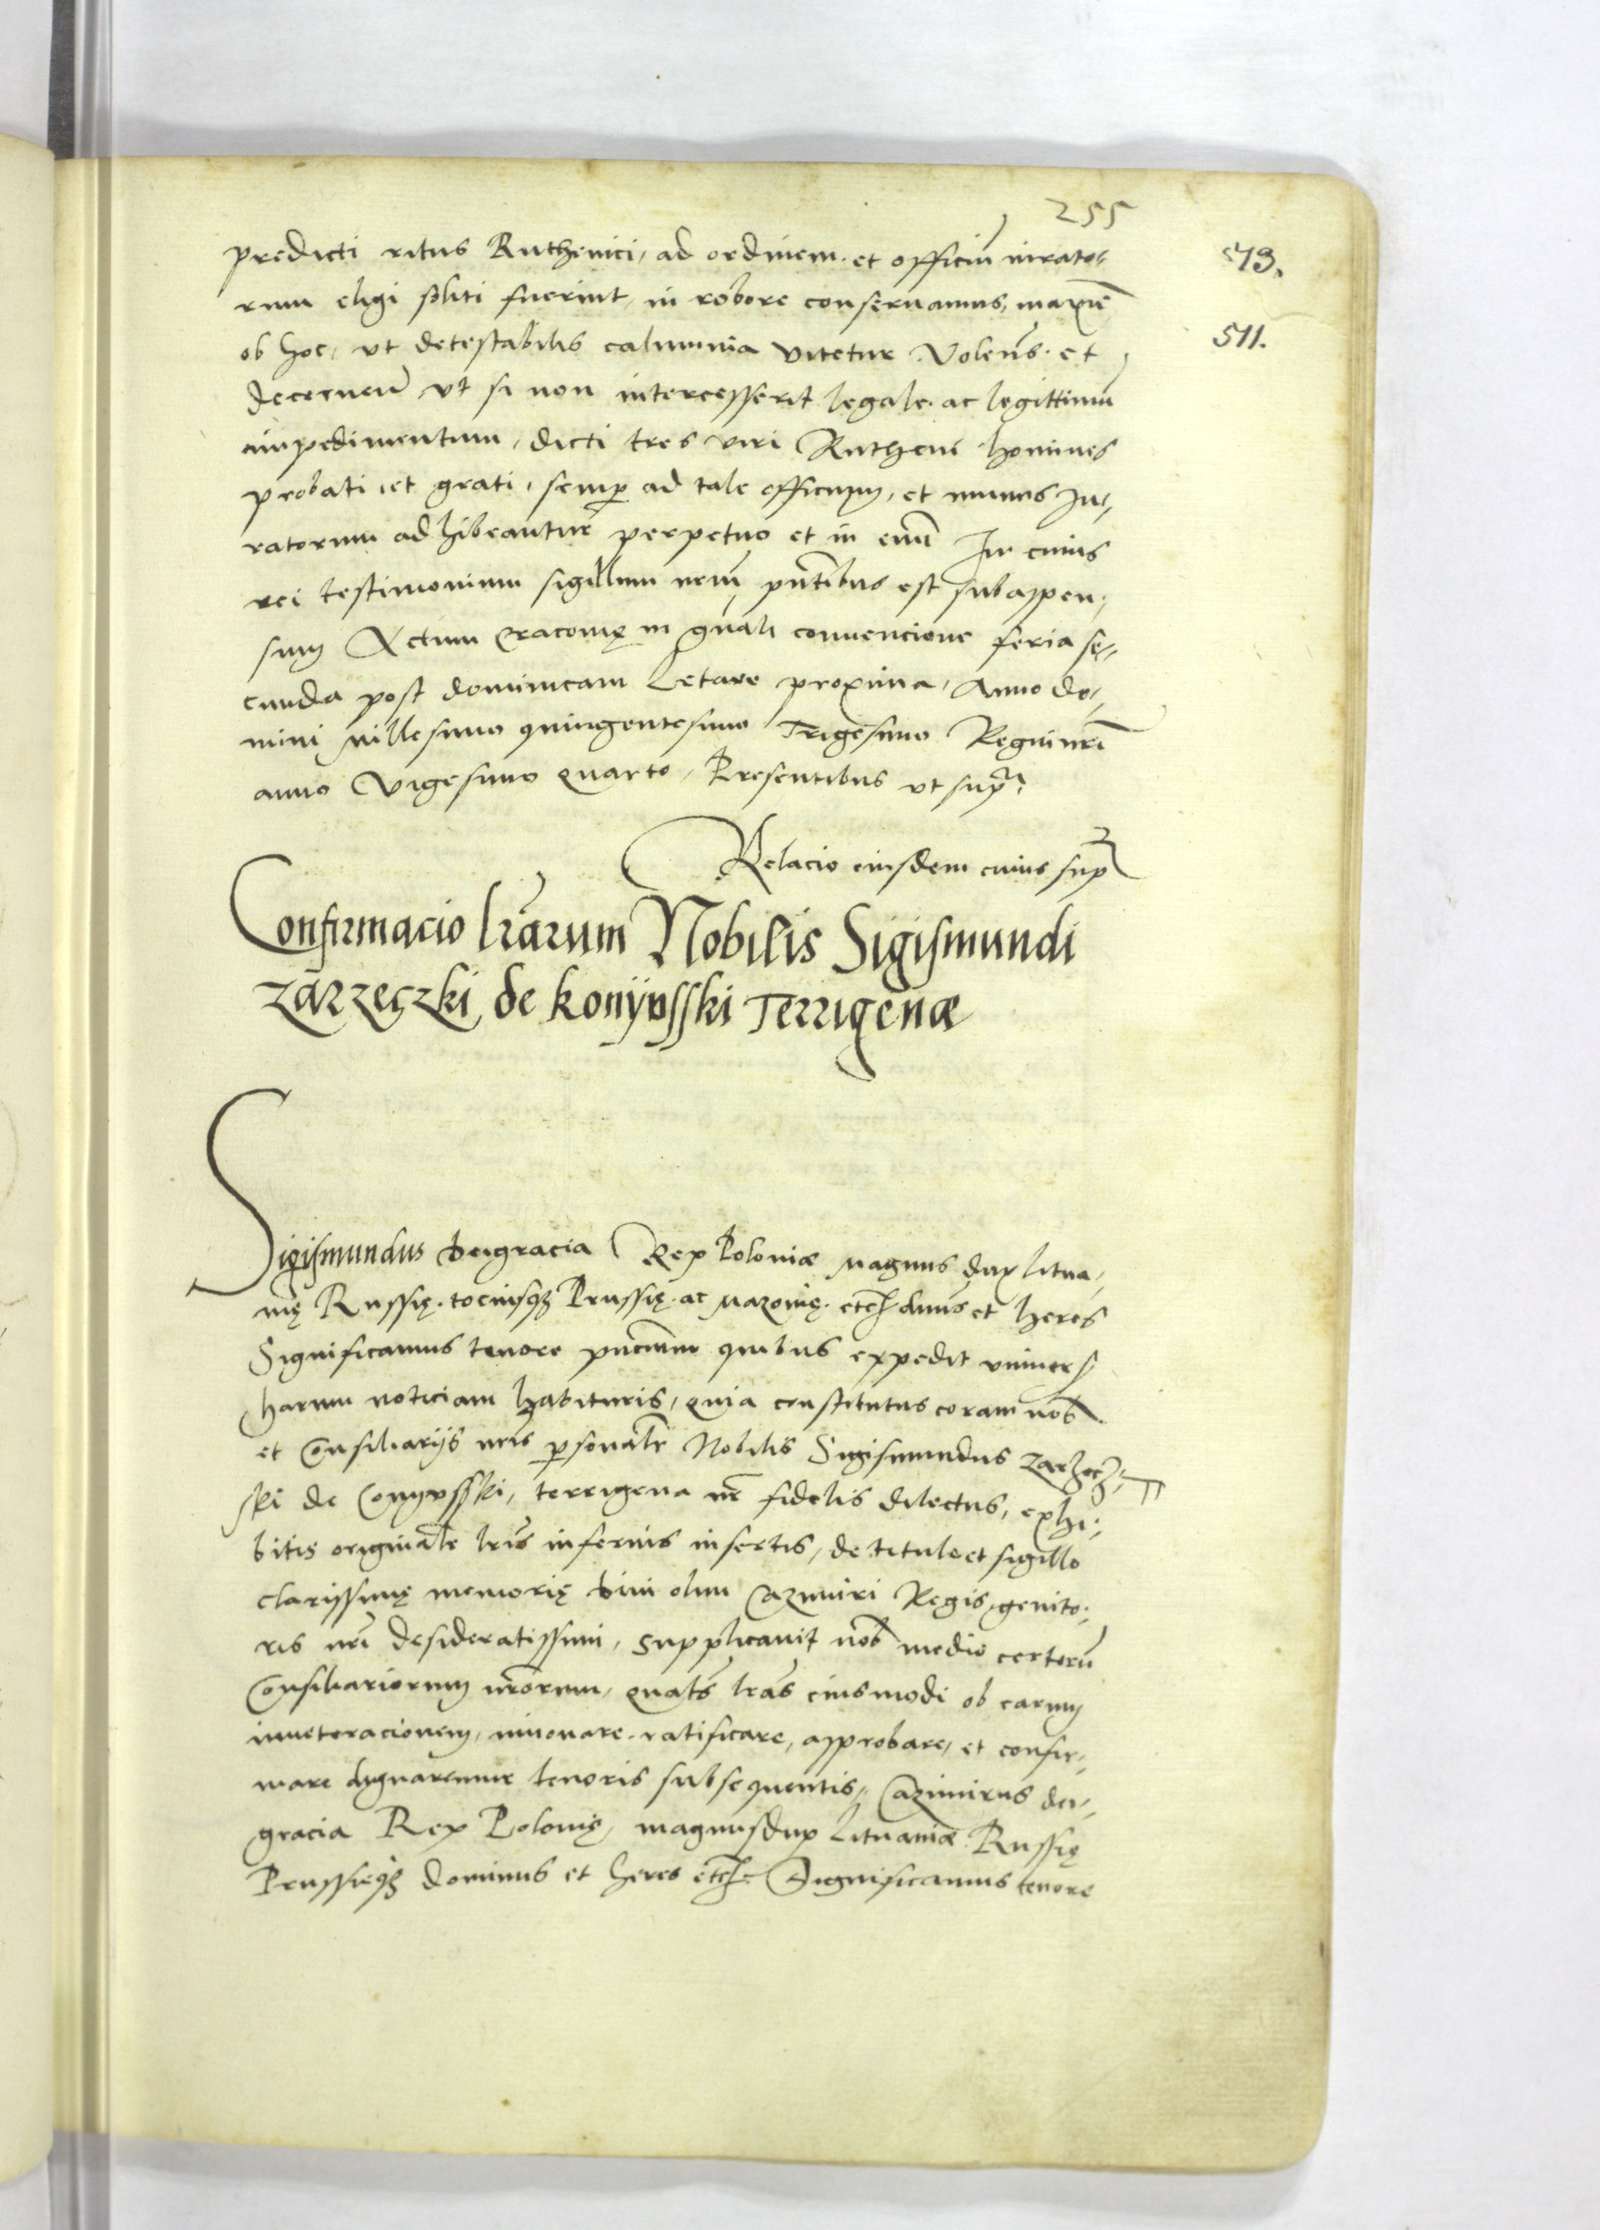 255
573.
511.
predicti ritus Ruthenici, ad ordinem et officiū iurato-
rum eligi soliti fuerint, in robore conseruamus, maxīe
ob hoc, vt detestabilis calumnia vitetur. Volens. et
decerneñ vt si non intercesserit legale. ac legittimū
impedimentum, dicti tres viri Rutheni homines
probati, et grati, semp ad tale officium, et munus Ju-
ratorum adhibeantur perpetuo et in euū In cuius
rei testimonium sigillum nrum pñtibus est subappen-
sum Actum Cracouię in gñali conuencione feria se-
cunda post dominicam Letare proxima, Anno do-
mini millesimo quingentesimo Trigesimo Regni nrī
anno Vigesimo quarto, Presentibus vt supra
Relacio eiusdem cuius supra
Confirmacio lrarum Nobilis Sigismundi
Zarzeczki de Konyvsski Terrigenæ
Sigismundus dei gracia Rex Poloniæ magnus dux litua-
nię Russię. tociusqz Prussię. ac Mazouię. etc. dnus et heres
Significamus tenore pñcium quibus expedit vniuers
harum noticiam habituris, quia constitutus coram nob
et Consiliarijs nris psonalr Nobilis Sigismundus Zarzecz-
ski de Conyvsski, terrigena nr fidelis dilectus, exhi-
bitis originalr lris inferius insertis, de titulo et sigillo
clarissimę memorię diui olim Cazimiri Regis, genito-
ris nri desideratissimi, supplicauit nob medio certorū
Consiliariorum nrorum, quats lras eiusmodi ob earum
inueteracionem, innouare. ratificare, approbare, et confir-
mare dignaremur tenoris subsequentis, Cazimirus dei-
gracia Rex Polonię, magnusdux Lituaniæ Russię
Prussieqz dominus et heres etc. Significamus tenore